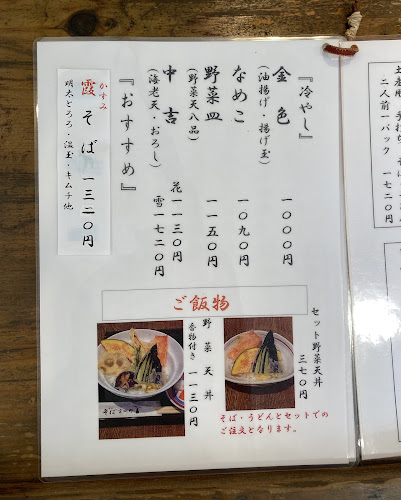 『冷やし』
金色
(油揚げ・揚げ玉)
一〇〇〇円
なめこ
一〇九〇円
野菜皿
(野菜天八品)
一一五〇円
中吉
(海老天・おろし)
花 一一三〇円
雪 一七二〇円
『おすすめ』
かすみ
霞そば 一三二〇円
明太とろろ・温玉・キムチ他
ご飯物
セット野菜天丼
三七〇円
そば・うどんとセットでの
ご注文となります。
野菜天丼
香物付き 一一三〇円
二人前一パック
一七二〇円